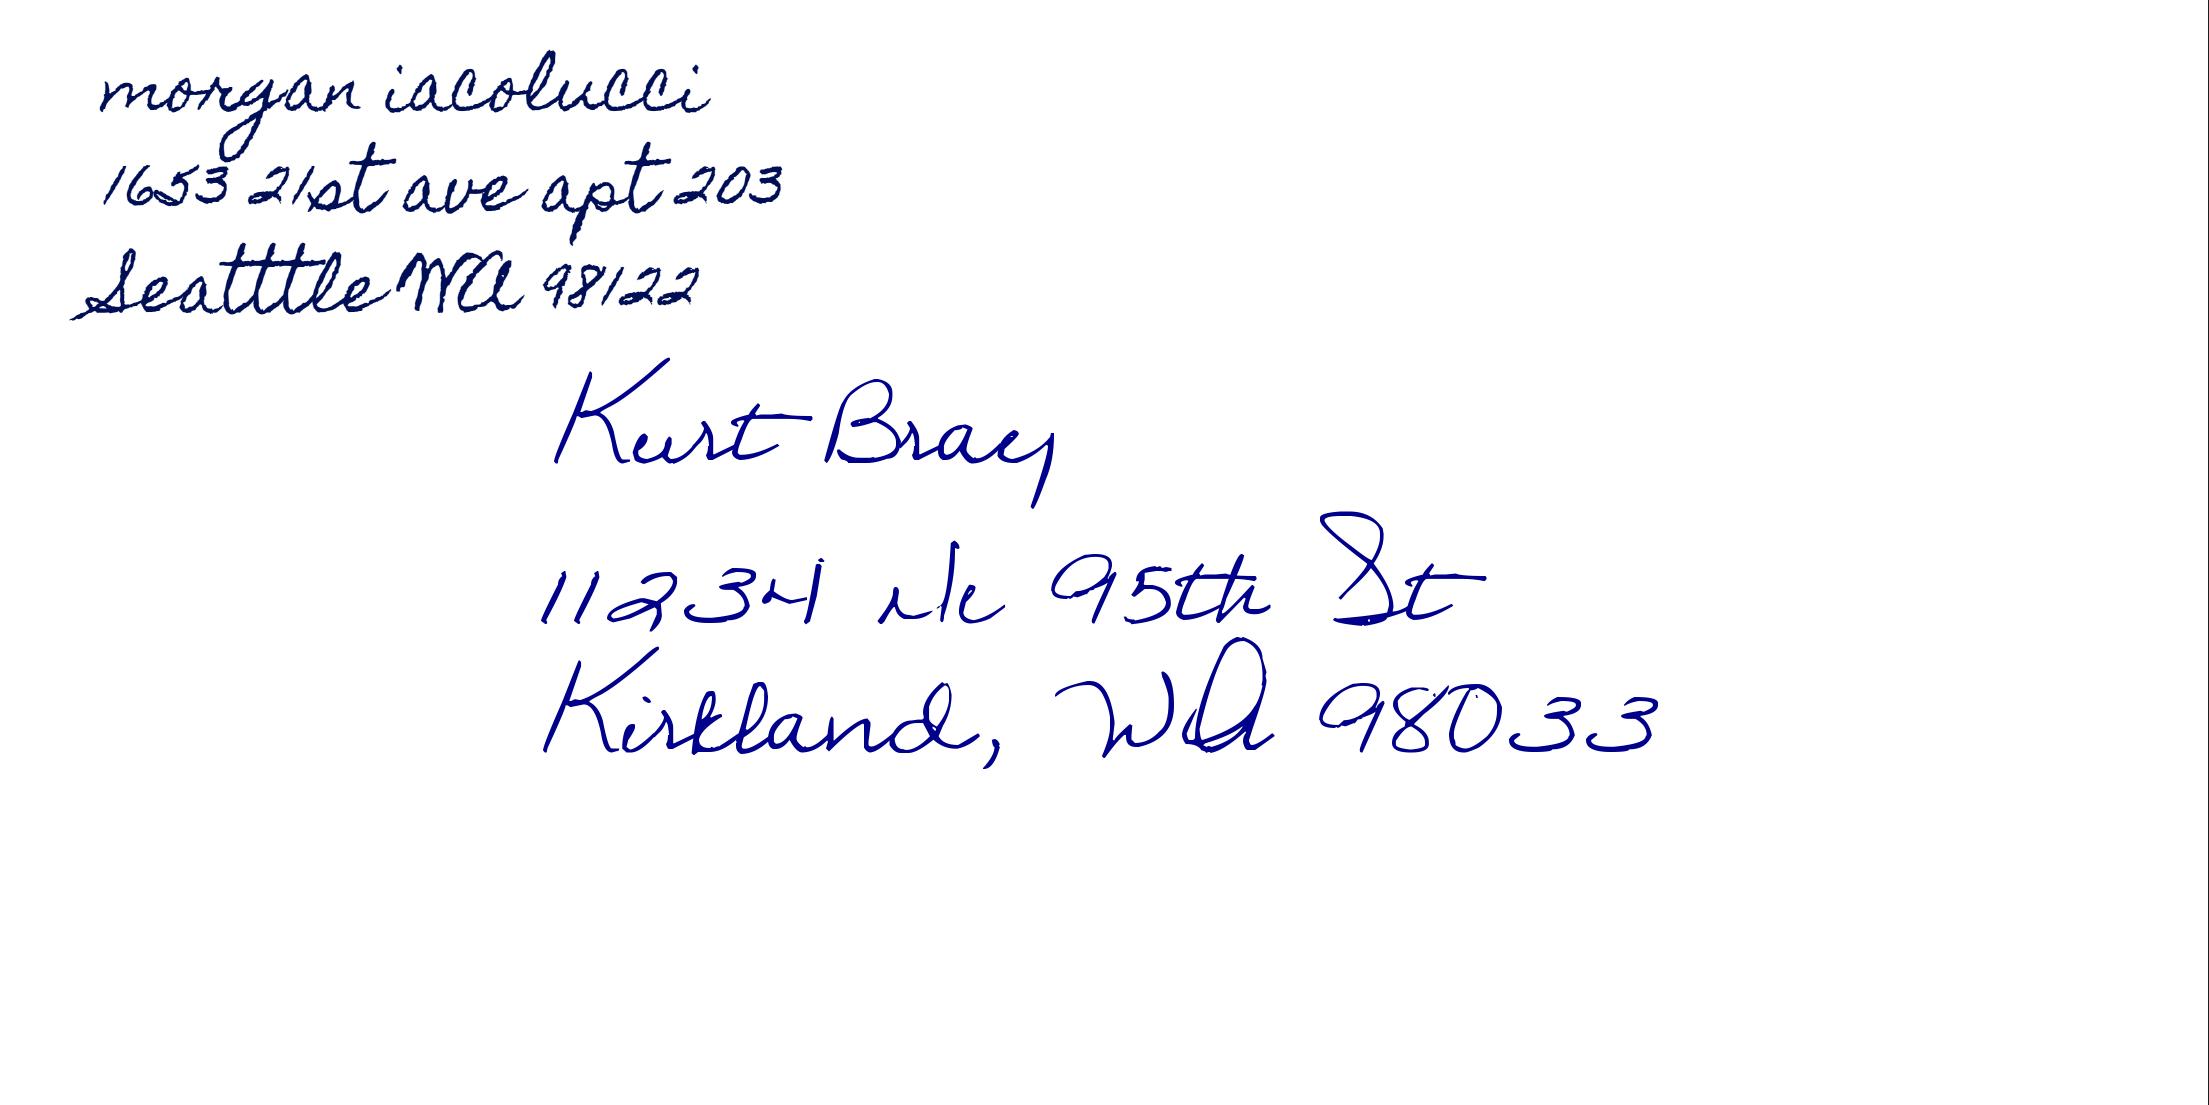 morgan iacolucci
1653 21st ave apt 203
Seatttle WA 98122
Kurt Bray
11234 Ne 95th St
Kirkland, WA 98033